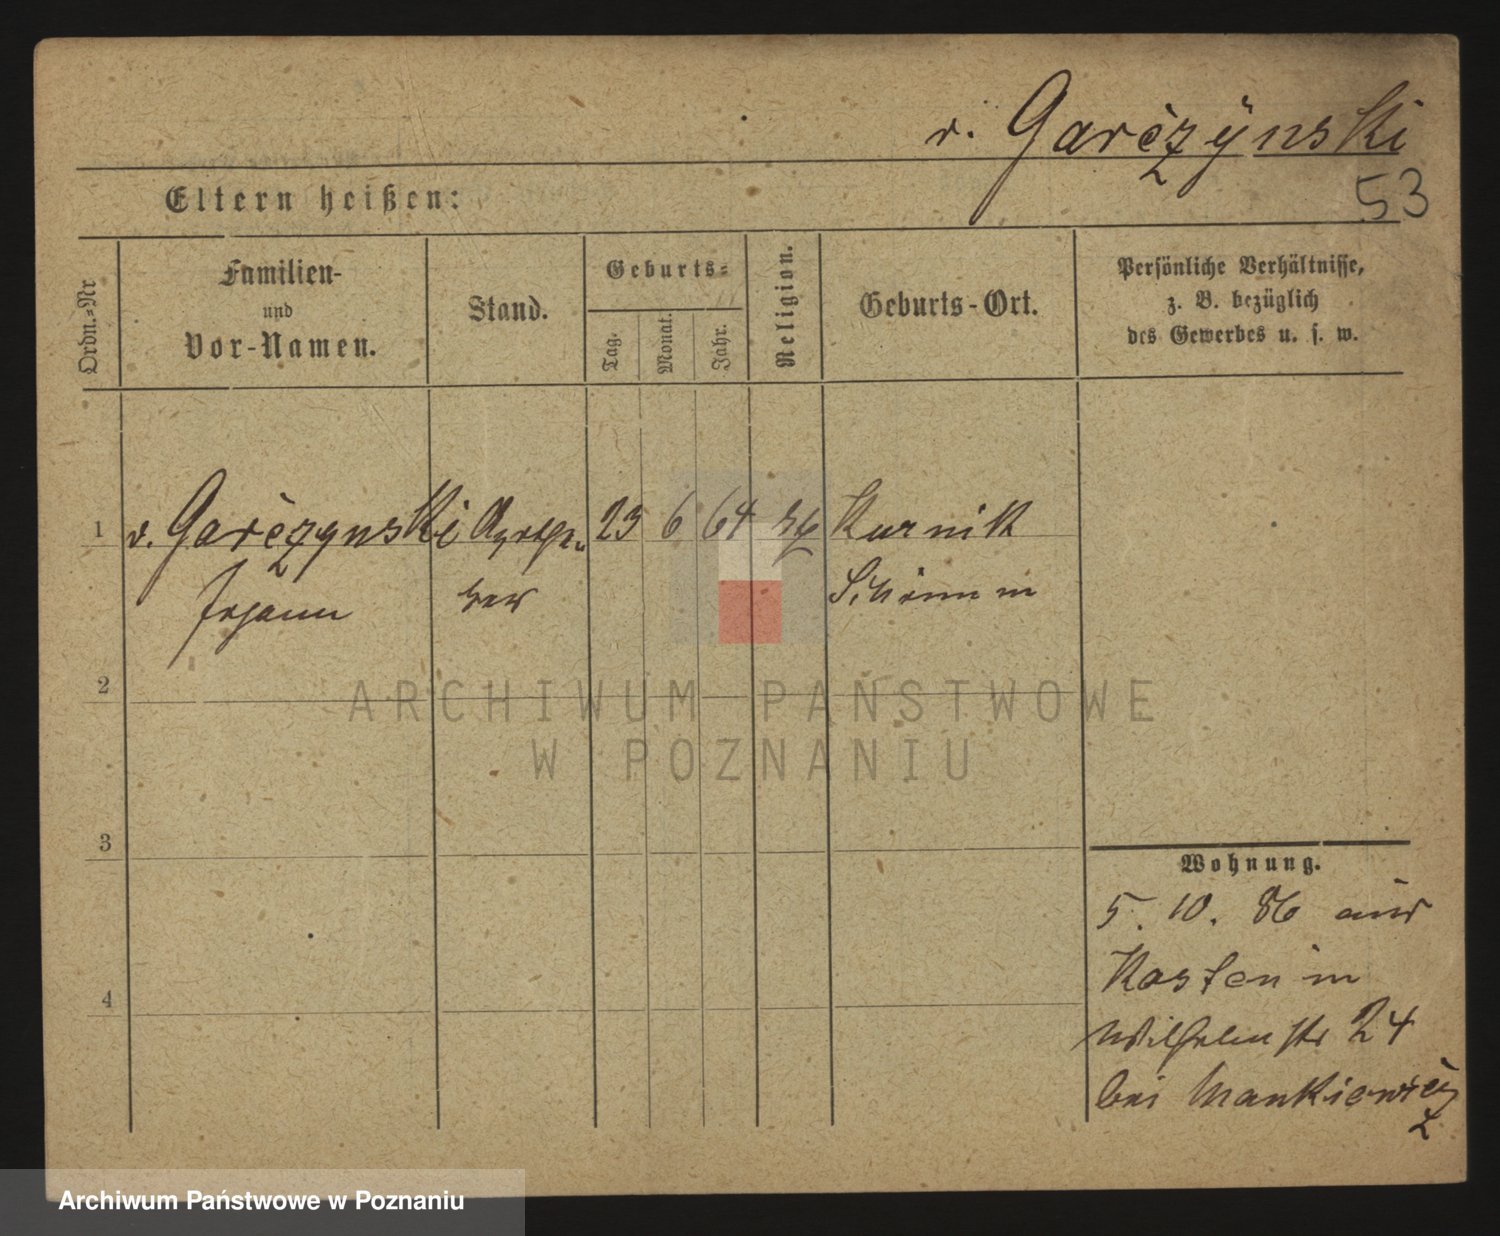 v. Garczynski
53
Eltern heißen:
Ordn.-Nr
Familien-
und
Vor-Namen.
Stand.
Geburts-
Tag.
Monat.
Jahr.
Religion.
Geburts-Ort.
Persönliche Verhältnisse,
z. B. bezüglich
des Gewerbes u. s. w.
1 v. Garczynski 23 6 64 Kurnik
Johann Schrimm
2
3
4
Wohnung.
5. 10. 86 aus
Kosten in
Wilhelmstr 24
bei Mankiewicz
ARCHIWUM PAŃSTWOWE
W POZNANIU
Archiwum Państwowe w Poznaniu